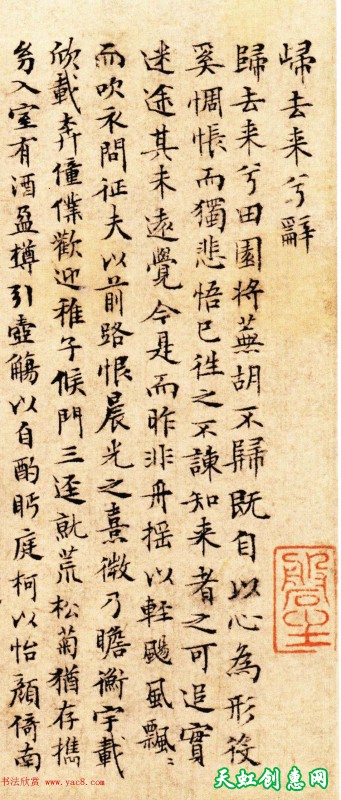 㱕去来兮辭
歸去来兮田園將蕪胡不歸既自以心為形役
奚惆悵而獨悲悟已往之不諫知来者之可追實
迷途其未遠覺今是而昨非舟揺以輕颺風飄〻
而吹衣問征夫以前路恨晨光之熹微乃瞻衡宇載
欣載奔僮僕歡迎稚子候門三逕就荒松菊猶存攜
幼入室有酒盈樽引壺觴以自酌眄庭柯以怡顔倚南
书法欣赏 www.yac8.com
天虹创惠网